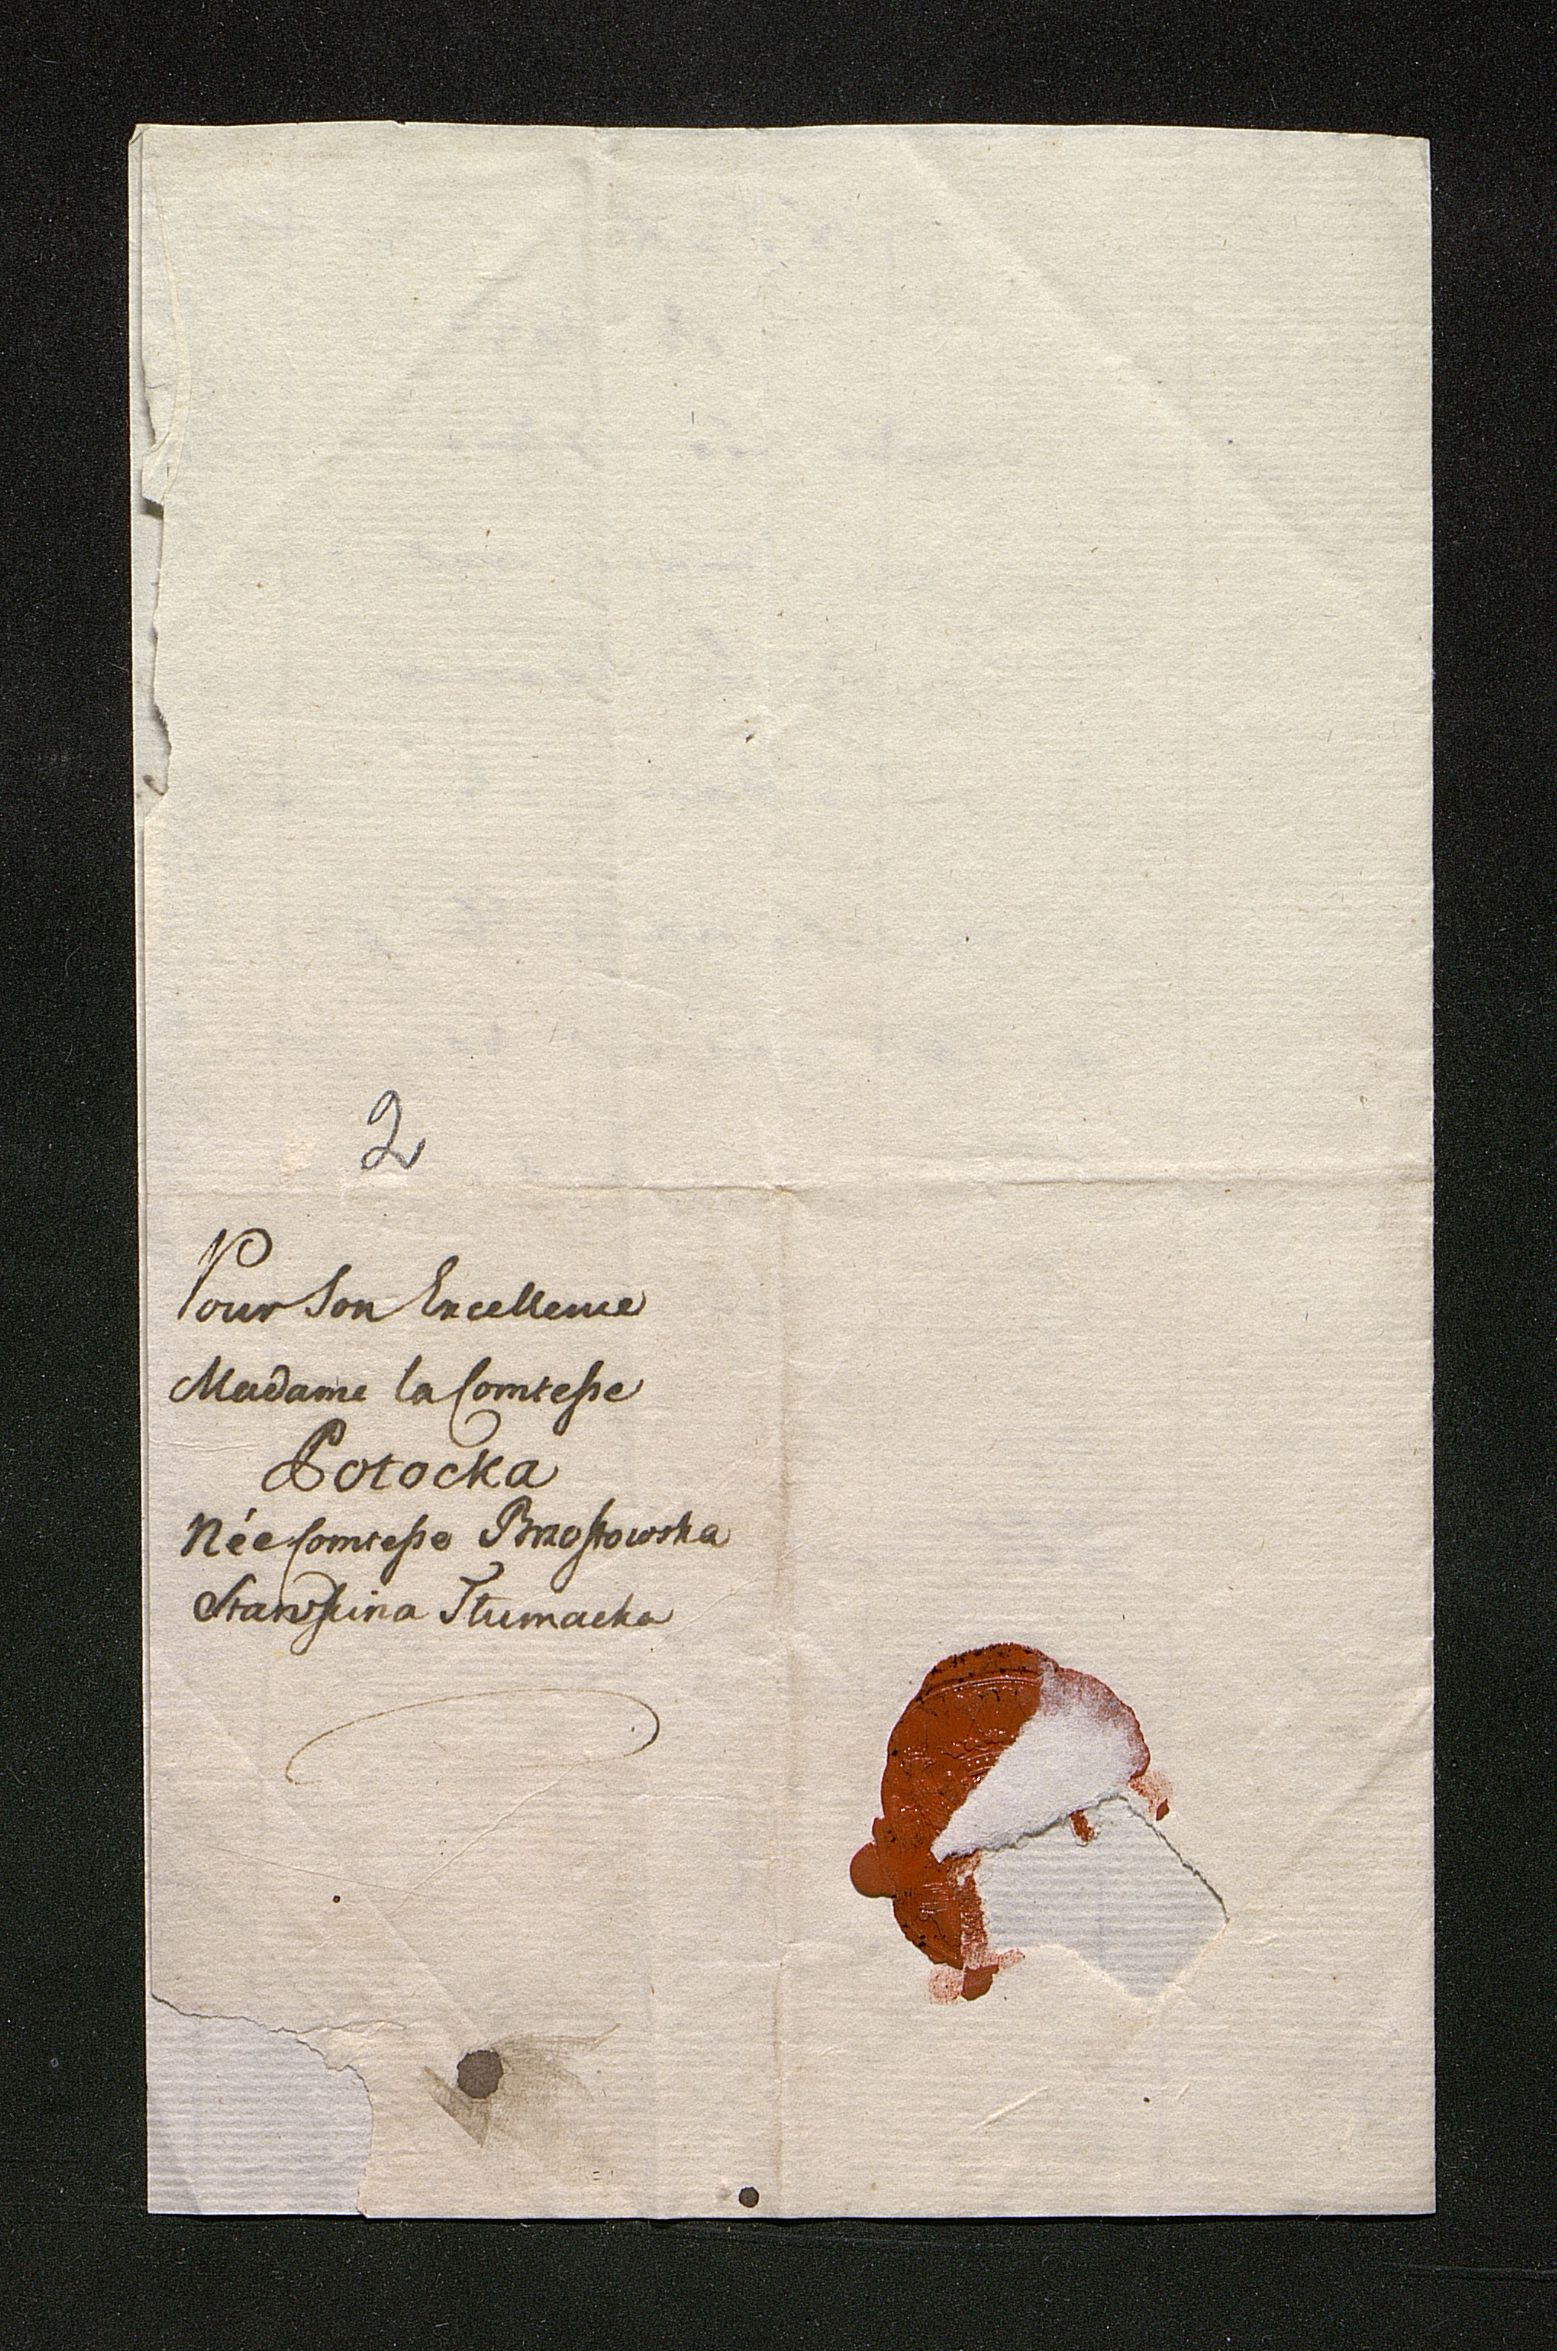 2
Pour Son Excellence
Madame la Comtesse
Potocka
Née Comtesse Brzostowska
Starościna Tłumacka